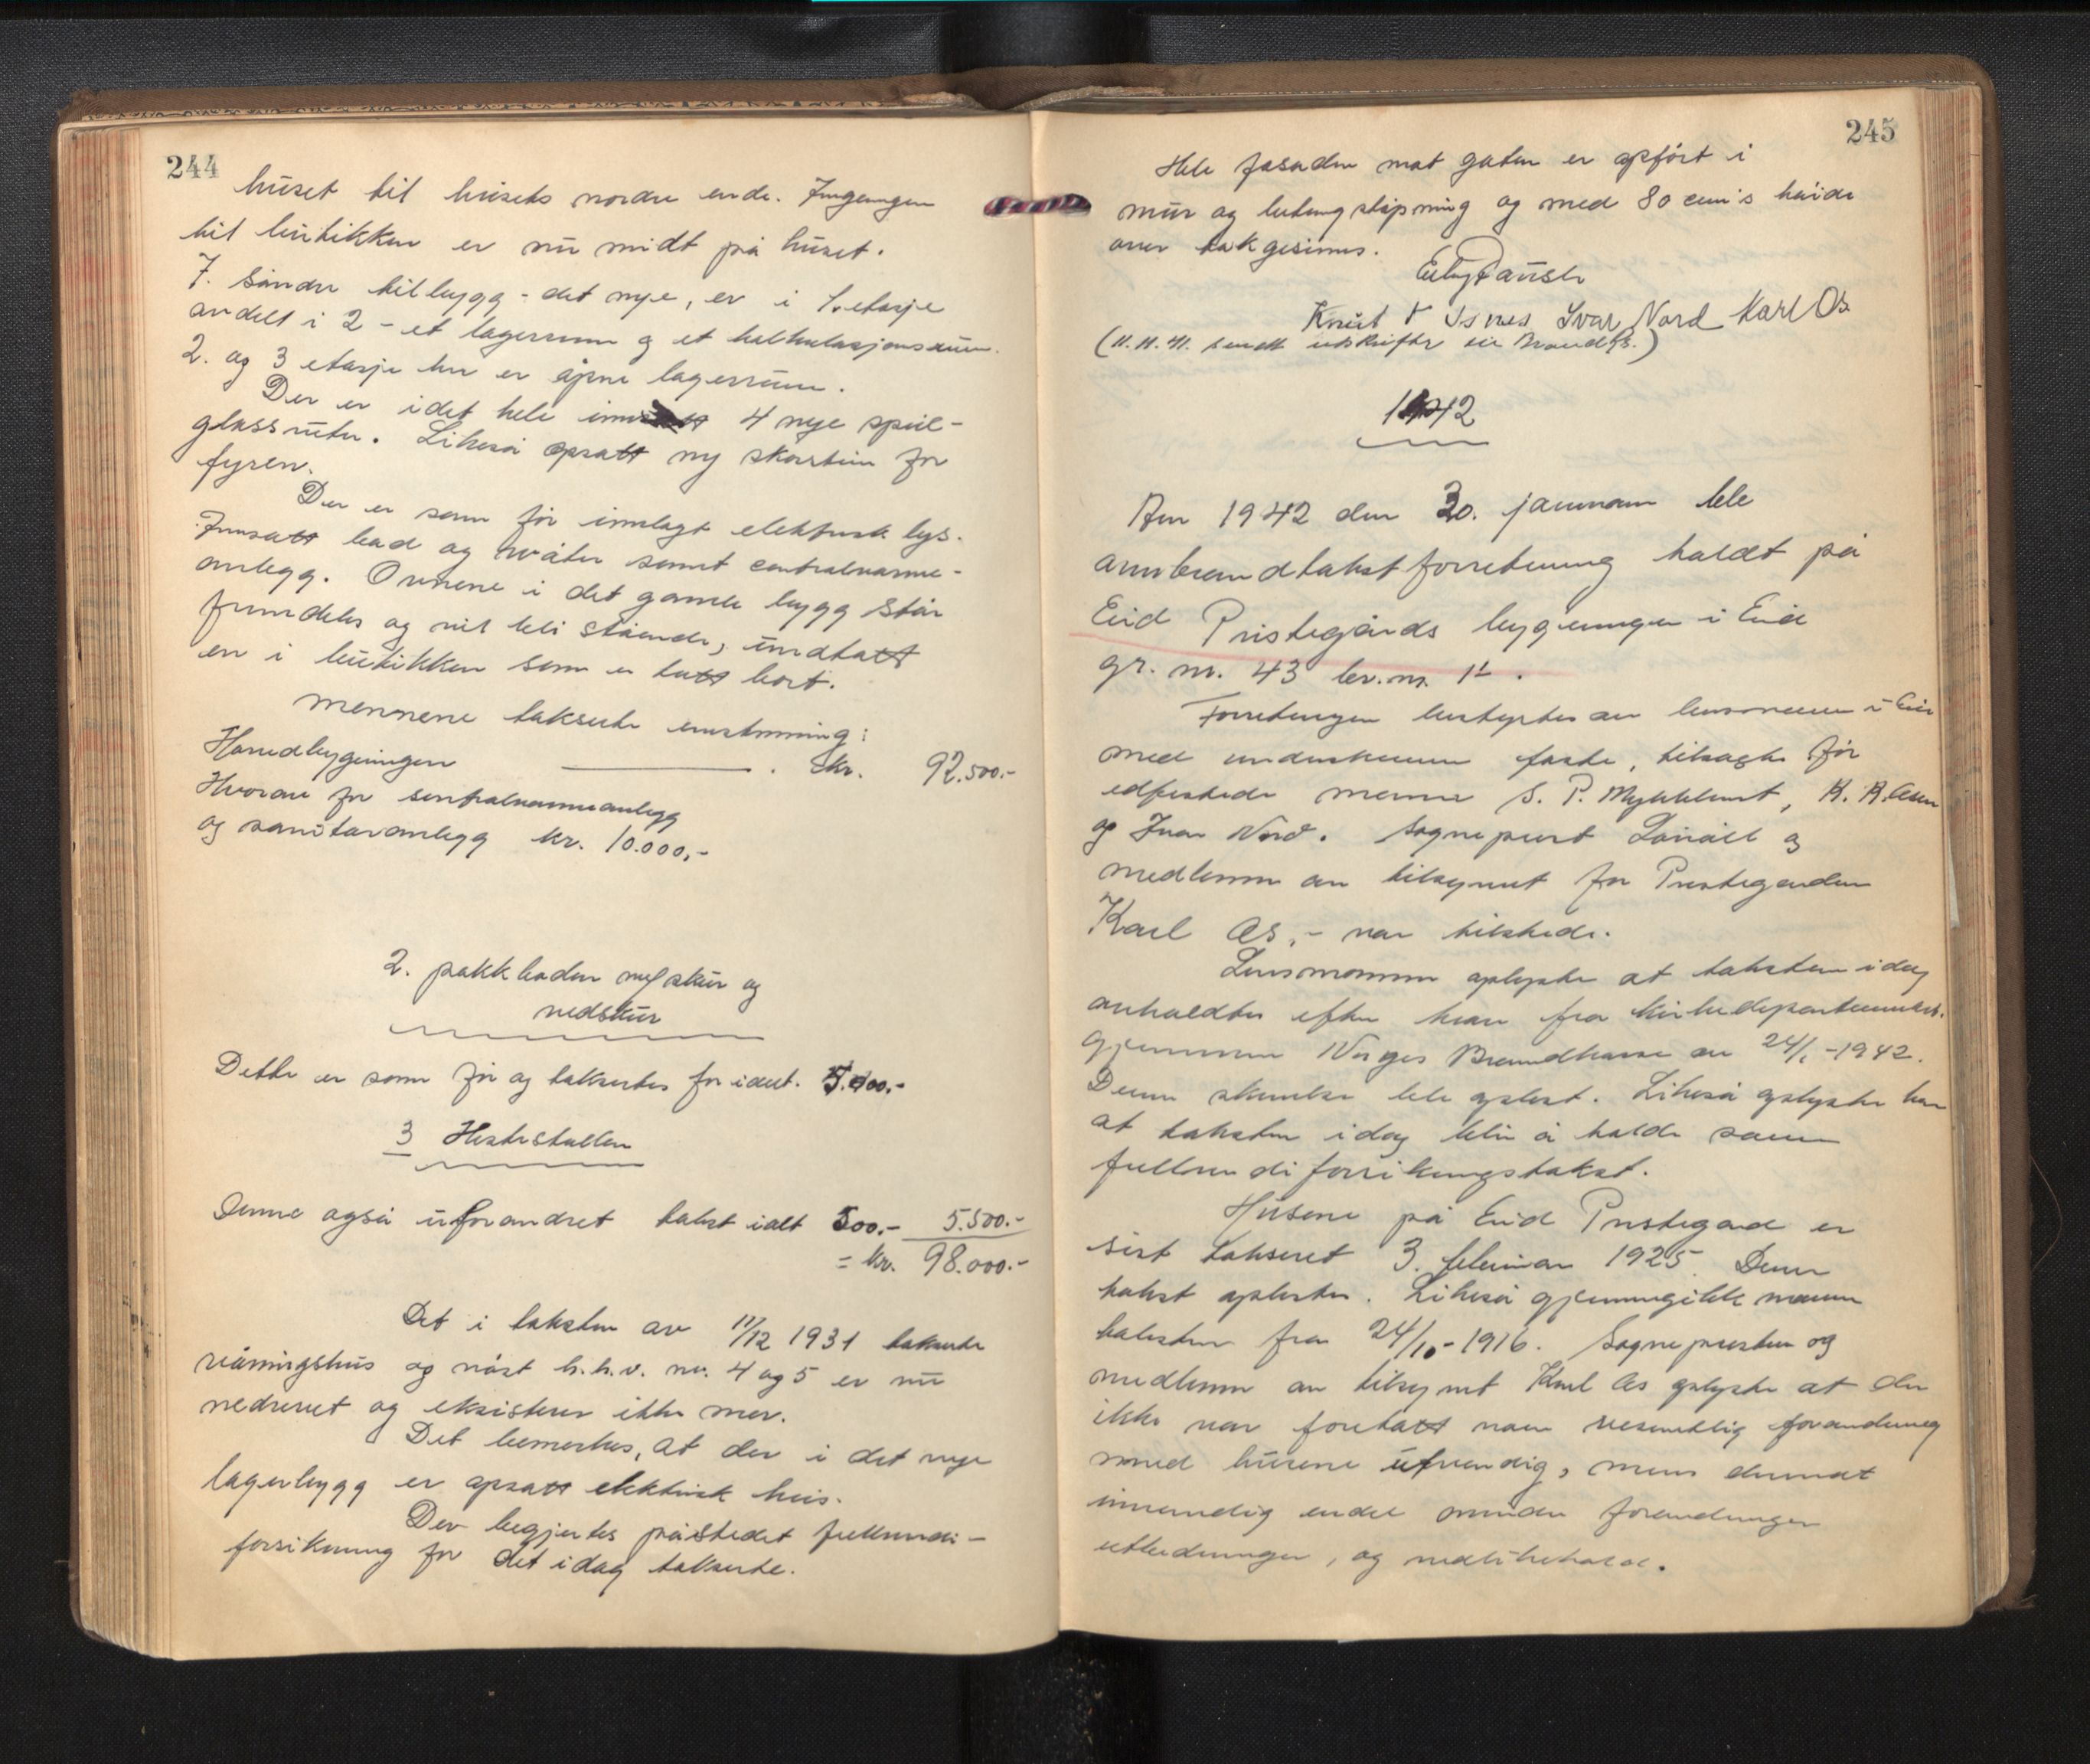 244
huset til husets nordre ende. Inngangen
til butikken er nu midt på huset.
I søndre tilbygg - det nye, er i 1. etasje
avdelt i 2 - et lagerrum og et kalkulasjonsrum.
2. og 3 etasje her er åpne lagerrum.
Der er i det hele innsatt 4 nye speil-
glassruter. Likeså opsatt ny skorstein for
fyren.
Der er som før innlagt elektrisk lys.
Innsatt bad og wåter samt centralvarme-
anlegg. Ovnene i det gamle bygg står
fremdeles og vil bli stående, undtatt
en i butikken som er tatt bort.
Mennene takserte enstemmig:
Hovedbygningen . kr. 92.500.-
Hvorav for sentralvarmeanlegg
og sanitæranlegg kr. 10.000,-
2. pakkboden m/skur og
vedskur
Dette er som før og takseres for ident. 5.000.-
3 Hestestallen
Denne også uforandret takst ialt 500.- 5.500.-
= kr. 98.000.-
Det i taksten av 11/12 1931 takserte
våningshus og nøst h.h.v. nr. 4 og 5 er nu
nedrevet og eksisterer ikke mer.
Det bemerkes, at der i det nye
lagerbygg er opsatt elektrisk heis.
Der begjertes påstedet fullverdi-
forsikring for det idag takserte.
245
Hele fasaden mot gaten er opført i
mur og betongstøpning og med 80 cm's høide
over takgesims.
Knut Isnes Ivar Nord Karl Os
(11.11.41. sendt utskrifter til Brandk.)
1942
Aar 1942 den 30. januar ble
ambrandtakstforretning holdt på
Eid Prestegårds bygninger i Eid
gr. nr. 43 br.nr. 1.
Forretningen bestyrtes av lensmannen i Eid
med underskrevne faste, tilsagte før
edfestede menn S. P. Myklebust, R. R.
og Ivar Nord. Sogneprest og
medlem av tilsynet for Prestegarden
Karl Os,- var tilstede.
Lensmannen oplyste at taksten idag
avholdtes efter krav fra kirkedepartementet.
gjennem Norges Brandkasse av 24/1-1942.
Denne skrivelse ble oplest. Likeså oplyste han
at taksten idag blir å holde som
fullverdiforsikringstakst.
Husene på Eid Prestegard er
sist taksert 3. februar 1925. Denne
takst oplestes. Likeså gjennemgikk mennene
taksten fra 24/10-1916. Sognepresten og
medlem av tilsynet Karl Os oplyste at der
ikke var foretatt noen vesentlig forandring
med husene utvendig, mens derimot
innvendig endel mindre forandringer
utbedringer, og vedlikehold.